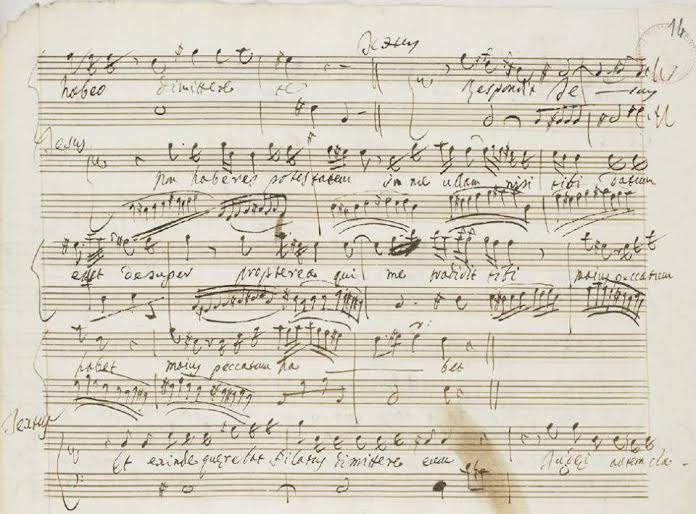 14
Textus
habeo dimittere te Respondit Je — sus
Jesus
Non haberes potestatem in me ullam nisi tibi datum
esset desuper propterea qui me tradidit tibi maius peccatum
habet maius peccatum ha — bet
Textus
Et exinde querebat Pilatus dimittere eum Judei autem cla -